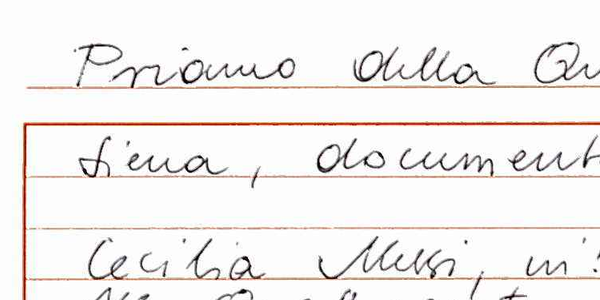 Priamo della Qu
Siena, document
Cecilia Meksi, in: